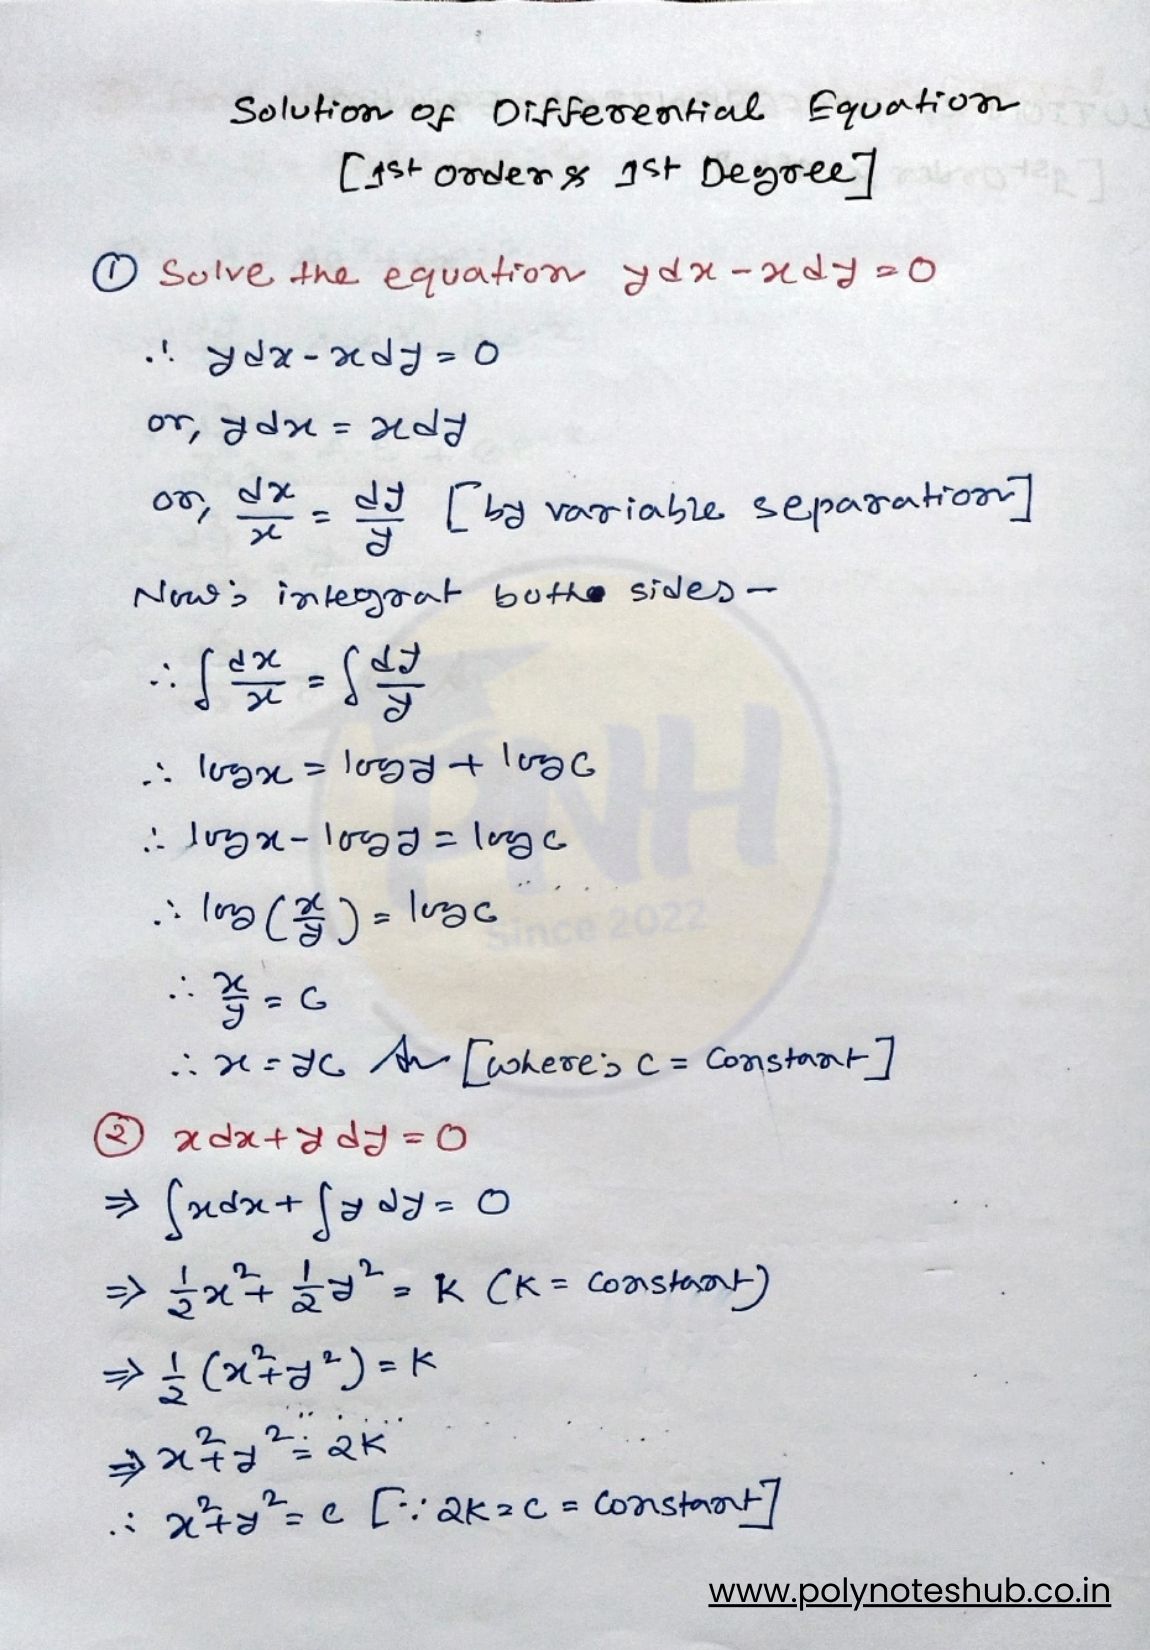 Solution of Differential Equation
[1st order & 1st Degree]
① Solve the equation ydx - xdy = 0
∴ ydx - xdy = 0
or, ydx = xdy
or, dx/x = dy/y [by variable separation]
Now; integrat both sides —
∴ ∫ dx/x = ∫ dy/y
∴ logx = logy + logc
∴ logx - logy = logc
∴ log(x/y) = logc
∴ x/y = c
∴ x = yc An [where; c = constant]
② xdx + ydy = 0
⇒ ∫xdx + ∫y dy = 0
⇒ 1/2 x² + 1/2 y² = K (K = constant)
⇒ 1/2 (x² + y²) = K
⇒ x² + y² = 2K
∴ x² + y² = c [∵ 2K = c = constant]
PNH
Since 2022
www.polynoteshub.co.in